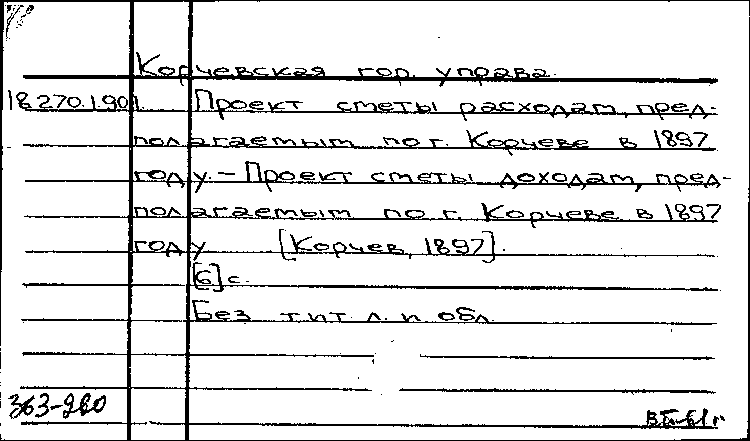 Корчевская гор. управа.
18.270.1.901. Проект сметы расходам, пред-
полагаемым по г. Корчеве в 1897
году. – Проект сметы доходам, пред-
полагаемым по г. Корчеве в 1897
году [Корчев, 1897].
[6] с.
Без тит. л. и обл.
363-260